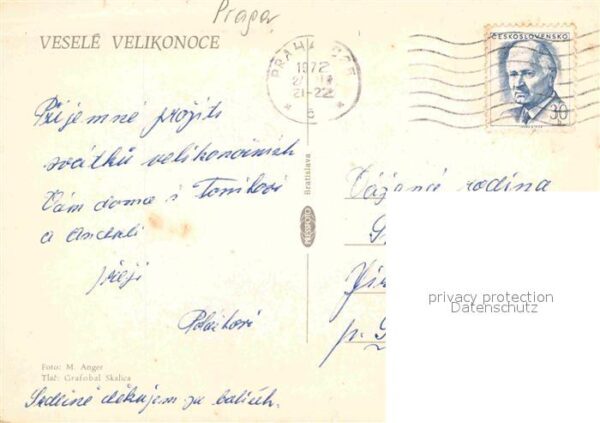 Praga
VESELÉ VELIKONOCE
PRAHA
1972
21-22
5
ČESKOSLOVENSKO
30
Příjemné prožití
svátků velikonočních
Vám doma i Toníkovi
a
přejí
Bratislava
PRESSFOTO
Vážená rodina
privacy protection
Datenschutz
Foto: M. Anger
Tlač: Grafobal Skalica
Srdečně děkujem za balíček.